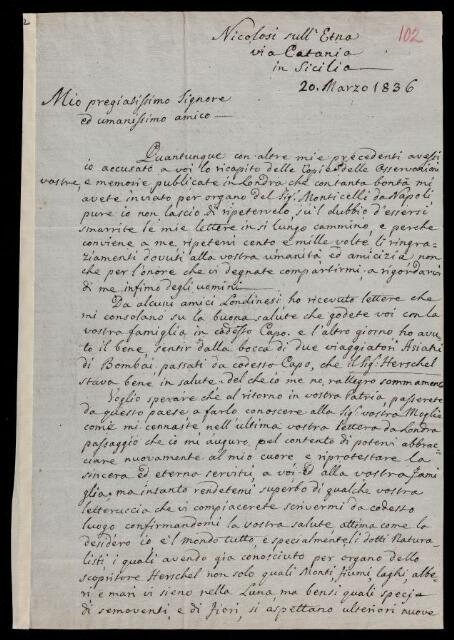 2
Nicolosi sull'Etna
102
via Catania
in Sicilia
20. Marzo 1836
Mio pregiatissimo Signore
ed umanissimo amico
Quantunque con altre mie precedenti avessi
io accusato a voi lo ricapito delle Copie delle Osservazioni
vostre, e memorie publicate in Londra che con tanta bontà mi
avete inviato per organo del Sigr. Monticelli da Napoli
pure io non lascio di ripetervelo, sù'l dubbio d'essersi
smarrite le mie lettere in sì lungo cammino, e perche
conviene a me, ripetervi cento e mille volte li ringra-
ziamenti dovuti alla vostra umanità ed amicizia non
che per l'onore che vi degnate compartirmi, a rigordarvi
di me infimo degli uomini
Da alcuni amici Londinesi ho ricevuto lettere che
mi consolano su la buona salute che godete voi con la
vostra famiglia in codesso Capo. e l'altro giorno ho avu-
to il bene, sentir dalla bocca di due viaggiatori Asiatici
di Bombai, passati da codesso Capo, che il Sigr. Herschel
stava bene in salute, del che io me ne rallegro sommamente
Voglio sperare che al ritorno in vostra Patria, passerete
da questo paese a farlo conoscere alla Sigra. vostra Moglie
come mi cennaste nell'ultima vostra lettera da Londra
passaggio che io mi auguro, pel contento di potervi abbrac-
ciare nuovamente al mio cuore e riprotestare la
sincera ed eterna servitù a voi ed alla vostra fami-
glia, ma intanto rendetemi superbo di qualche vostra
letteruccia che vi compiacerete scrivermi da codesto
luogo confirmandomi la vostra salute, ottima come la
desidero io e'l mondo tutto, e specialmente, li dotti Natura-
listi, i quali avendo gia conosciuto per organo dello
scopritore Herschel non solo quali Monti, fiumi, laghi, albe-
ri e mari vi sieno nella Luna, ma bensi quali specje
di semoventi, e di fiori, si aspettano ulteriori nuove